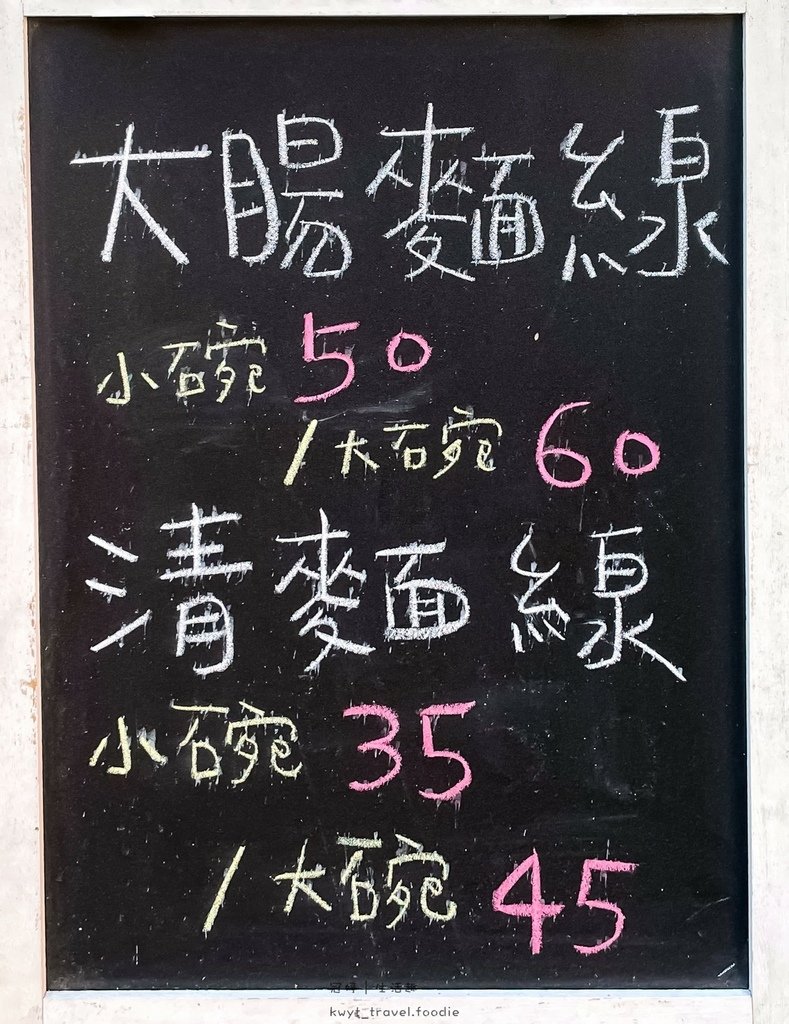 大腸麵線
小碗 50
/大碗 60
清麵線
小碗 35
/大碗 45
kwyt_travel.foodie